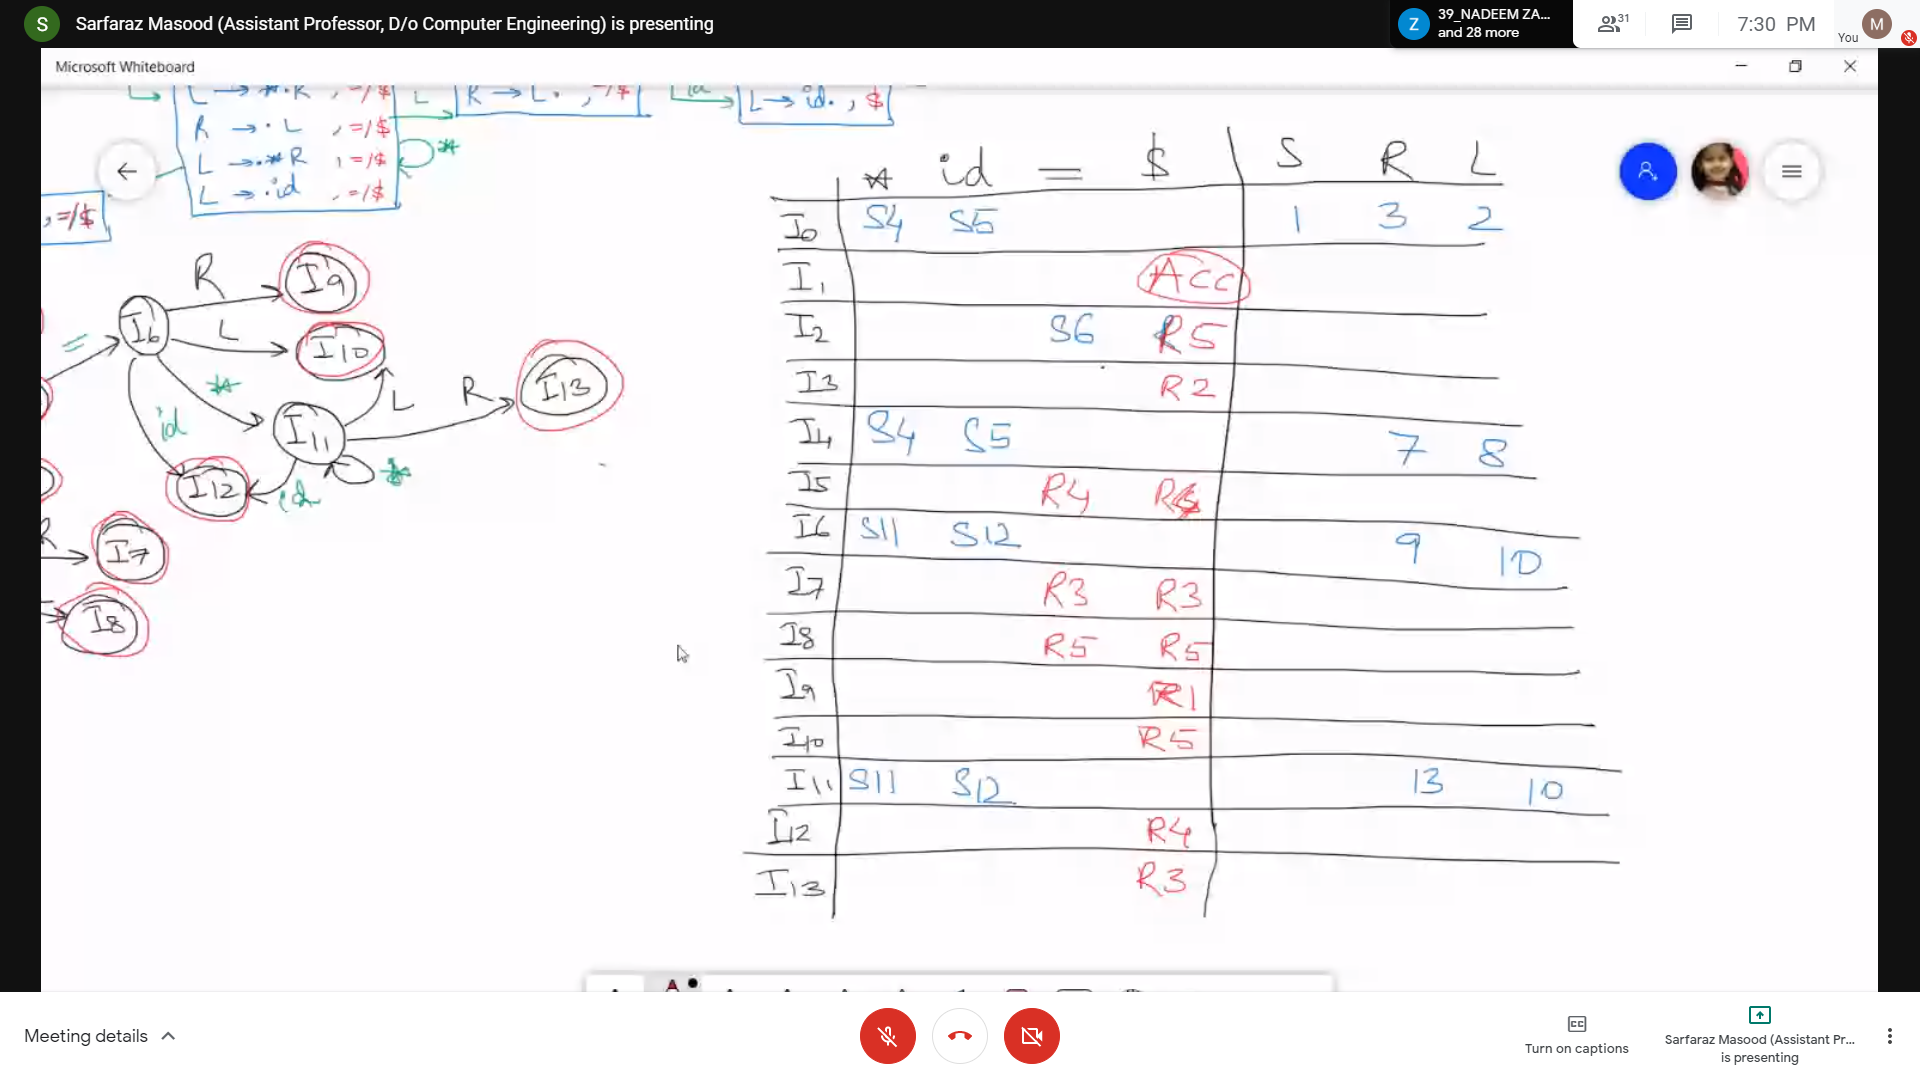 S Sarfaraz Masood (Assistant Professor, D/o Computer Engineering) is presenting
Z 39_NADEEM ZA...
and 28 more
31
7:30 PM
You M
Microsoft Whiteboard
L → *.R , =/$
L
R → L. , =/$
id
L → id. , $
R → .L , =/$
*
L → .*R , =/$
L → .id , =/$
, =/$
* id = $ S R L
I0 S4 S5 1 3 2
I1 Acc
I2 S6 R5
I3 R2
I4 S4 S5 7 8
I5 R4 R4
I6 S11 S12 9 10
I7 R3 R3
I8 R5 R5
I9 R1
I10 R5
I11 S11 S12 13 10
I12 R4
I13 R3
R I9
= I6 L I10
* L R I13
id I11 *
I12 id
R I7
I8
Meeting details
Turn on captions
Sarfaraz Masood (Assistant Pr...
is presenting